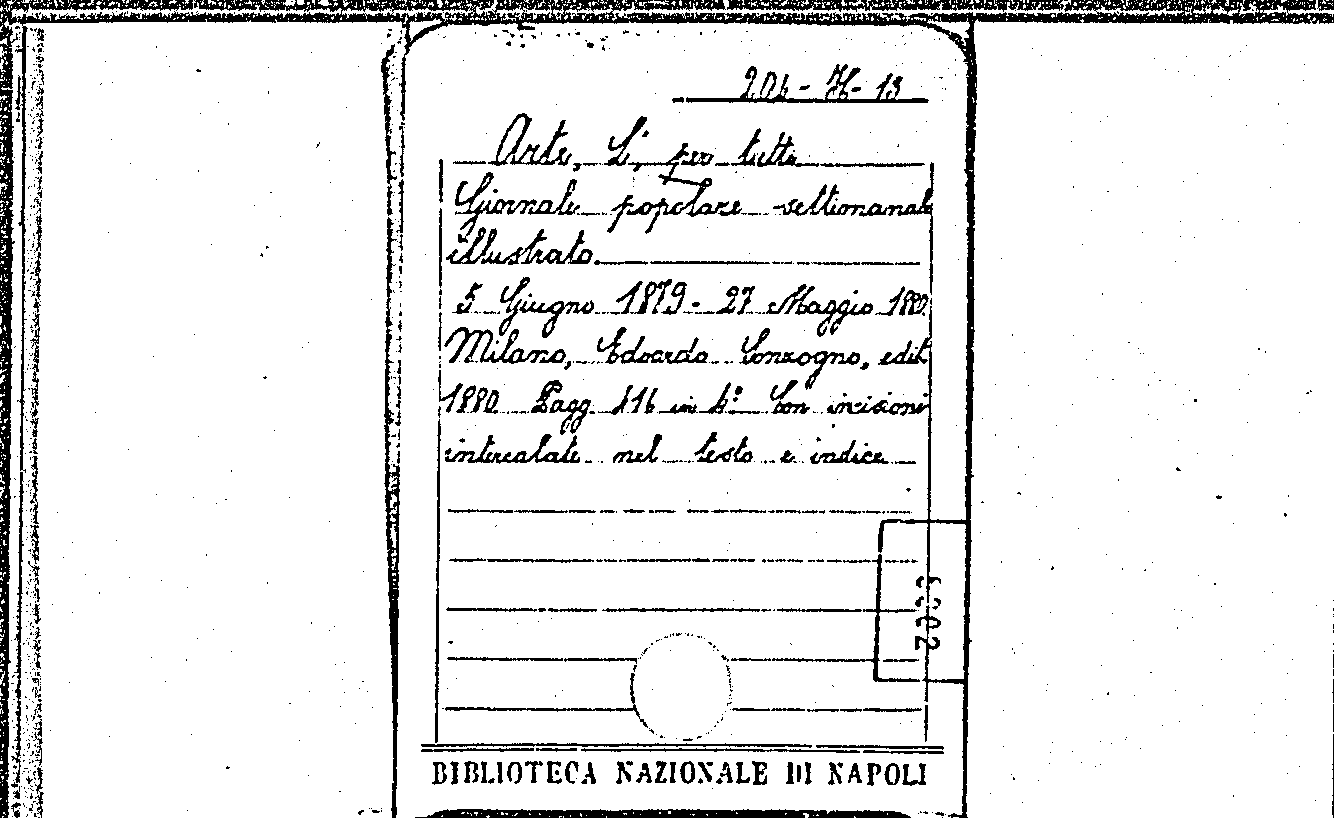 204-H-13
Arte, L', per tutti
Giornale popolare settimanale
illustrato.
5 Giugno 1879 - 27 Maggio 1880
Milano, Edoardo Sonzogno, edit.
1880 Pagg. 416 in 4º. Con incisioni
intercalate nel testo e indice
BIBLIOTECA NAZIONALE DI NAPOLI